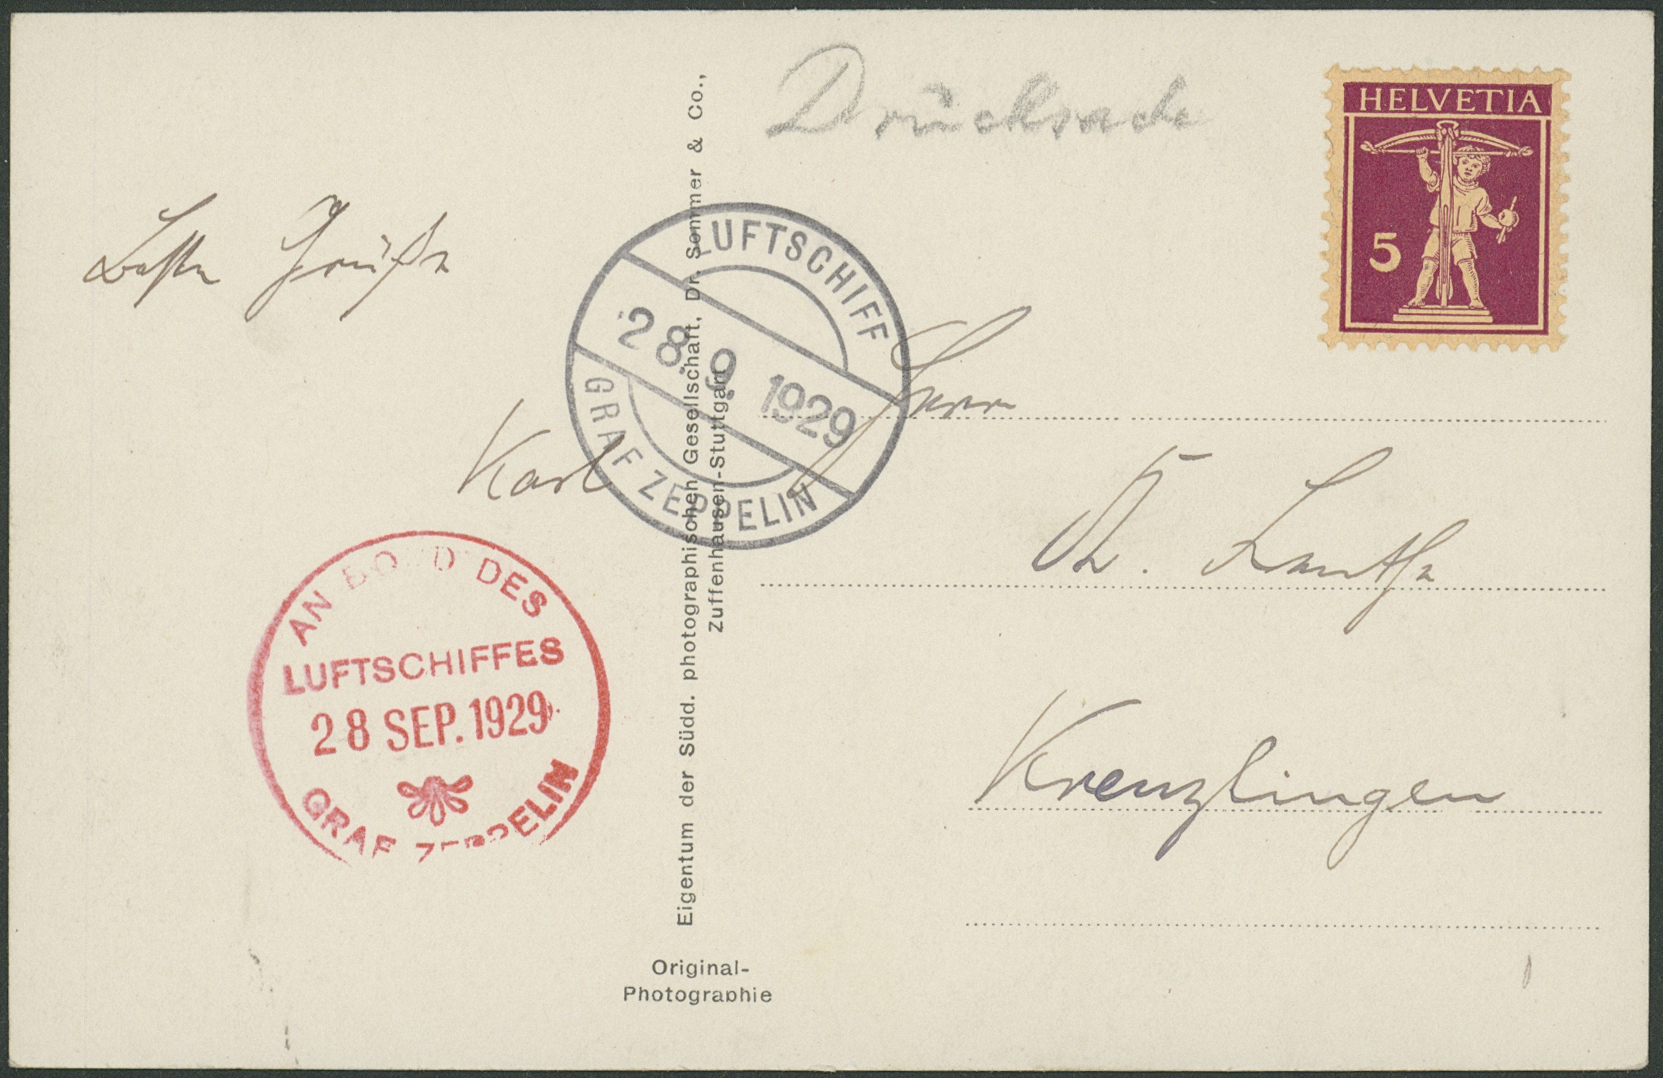 Drucksache
HELVETIA
5
Beste Grüße
Karl
LUFTSCHIFF
28.9.1929
GRAF ZEPPELIN
AN BORD DES
LUFTSCHIFFES
28 SEP. 1929
GRAF ZEPPELIN
Eigentum der Südd. photographischen Gesellschaft, Dr. Sommer & Co.,
Zuffenhausen-Stuttgart
Herrn
Kreuzlingen
Original-
Photographie